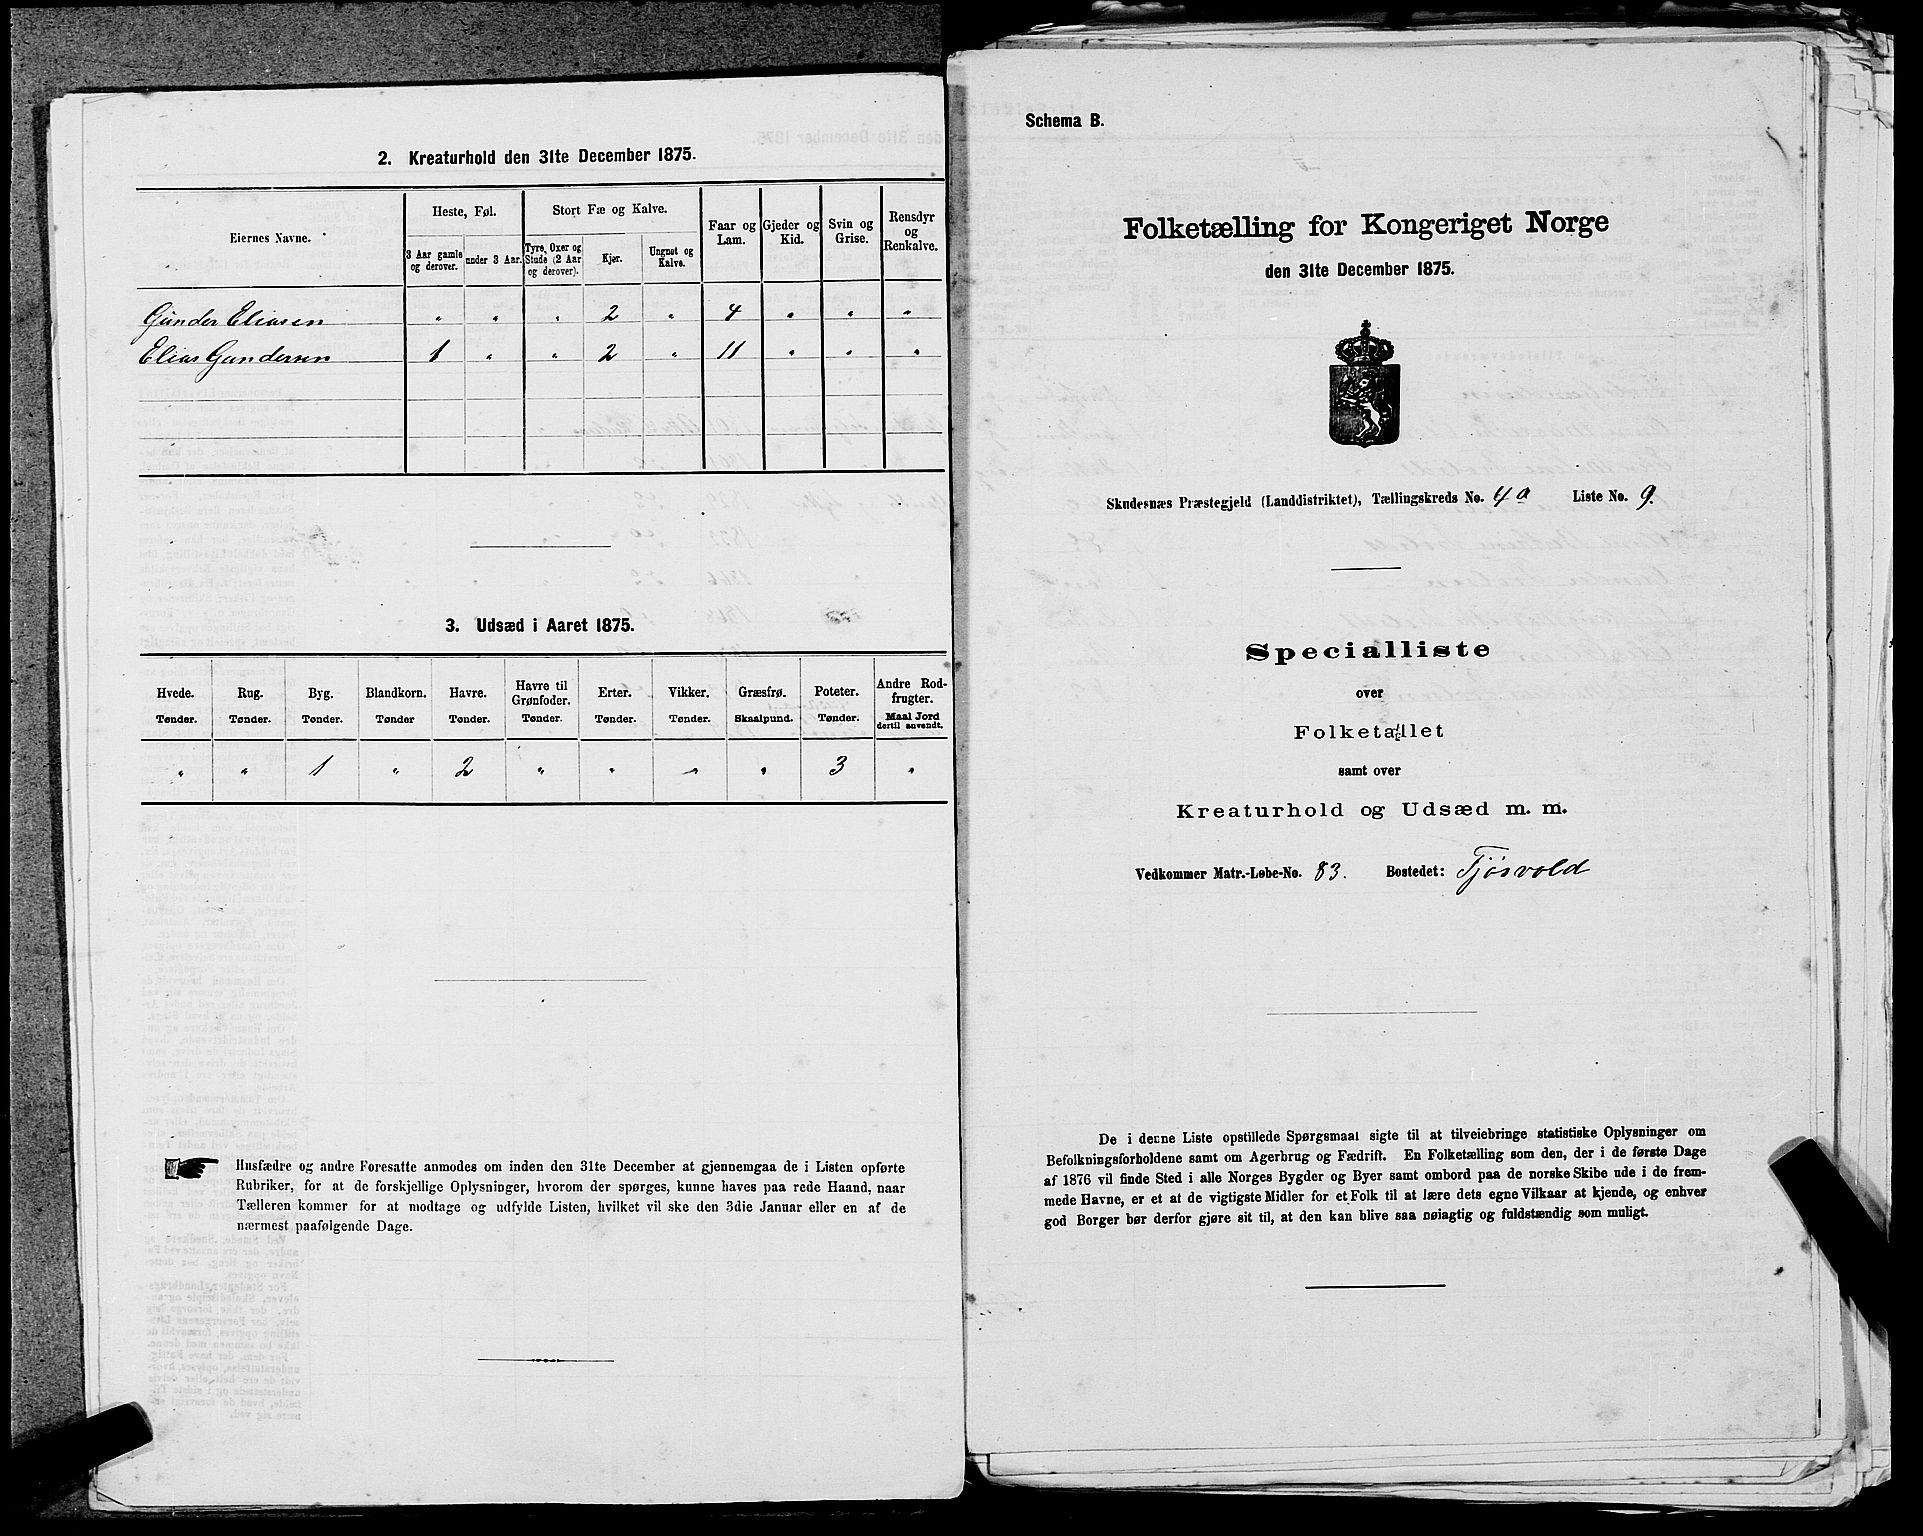 2. Kreaturhold den 31te December 1875.
Eiernes Navne.
Heste, Føl.
Stort Fæ og Kalve.
Faar og Lam.
Gjeder og Kid.
Svin og Grise.
Rensdyr og Renkalve.
3 Aar gamle og derover.
under 3 Aar.
Tyre, Oxer og Stude (2 Aar og derover).
Kjør.
Ungnøt og Kalve.
Gunder Eliasen " " " 2 " 4 " " "
Elias Gundersen 1 " " 2 " 11 " " "
3. Udsæd i Aaret 1875.
Hvede. Rug. Byg. Blandkorn. Havre. Havre til Grønfoder. Erter. Vikker. Græsfrø. Poteter. Andre Rodfrugter.
Tønder. Tønder. Tønder. Tønder Tønder. Tønder. Tønder. Tønder. Skaalpund. Tønder. Maal Jord dertil anvendt.
" " 1 " 2 " " " " 3 "
Husfædre og andre Foresatte anmodes om inden den 31te December at gjennemgaa de i Listen opførte
Rubriker, for at de forskjellige Oplysninger, hvorom der spørges, kunne haves paa rede Haand, naar
Tælleren kommer for at modtage og udfylde Listen, hvilket vil ske den 3die Januar eller en af de
nærmest paafølgende Dage.
Schema B.
Folketælling for Kongeriget Norge
den 31te December 1875.
Skudesnæs Præstegjeld (Landdistriktet), Tællingskreds No. 4a Liste No. 9.
Specialliste
over
Folketallet
samt over
Kreaturhold og Udsæd m. m.
Vedkommer Matr.-Løbe-No. 83. Bostedet: Tjösvold
De i denne Liste opstillede Spørgsmaal sigte til at tilveiebringe statistiske Oplysninger om
Befolkningsforholdene samt om Agerbrug og Fædrift. En Folketælling som den, der i de første Dage
af 1876 vil finde Sted i alle Norges Bygder og Byer samt ombord paa de norske Skibe ude i de frem-
mede Havne, er et at de vigtigste Midler for et Folk til at lære dets egne Vilkaar at kjende, og enhver
god Borger bør derfor gjøre sit til, at den kan blive saa nøiagtig og fuldstændig som muligt.